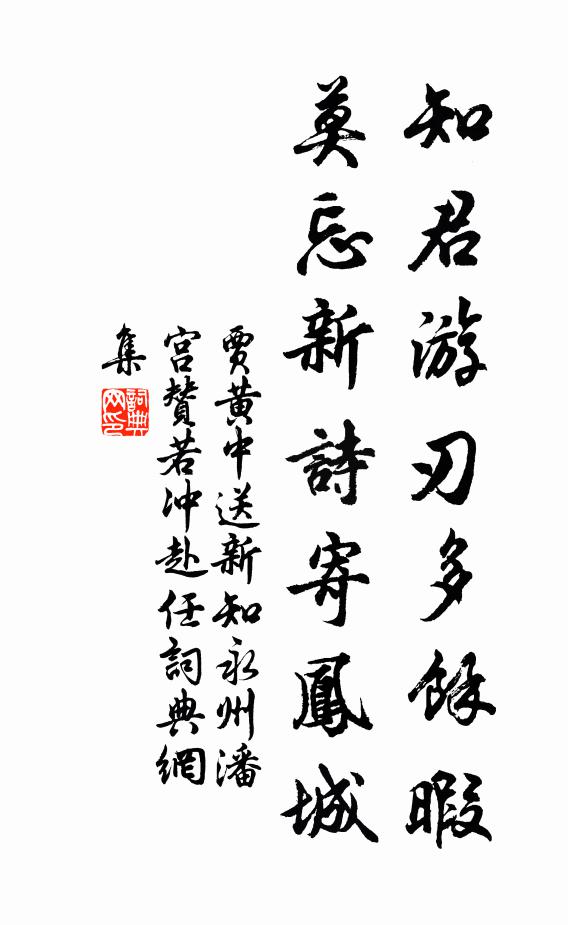 知君游刃多餘暇
莫忘新詩寄鳳城
賈黄中送新知永州潘
宫贊若冲赴任詞典網
集
詞典
网印